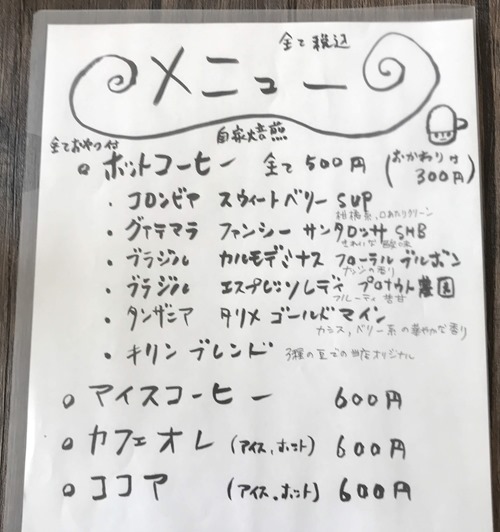 全て税込
メニュー
自家焙煎
全ておやつ付
ホットコーヒー 全て500円 (おかわりは300円)
・コロンビア スウィートベリー SUP
柑橘系、口あたりクリーン
・グァテマラ ファンシー サンタロッサ SHB
きれいな酸味
・ブラジル カルモデミナス フローラル ブルボン
ナッツの香り
・ブラジル エスプレッソレディ プロナウト農園
フルーティ 苦甘
・タンザニア タリメ ゴールドマイン
カシス、ベリー系の華やかな香り
・キリン ブレンド 3種の豆での当店オリジナル
アイスコーヒー 600円
カフェオレ (アイス、ホット) 600円
ココア (アイス、ホット) 600円